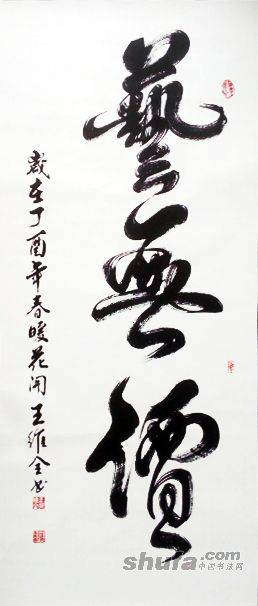 藝無價
歲在丁酉年春暖花開王維全書
shufa.com
中国书法网